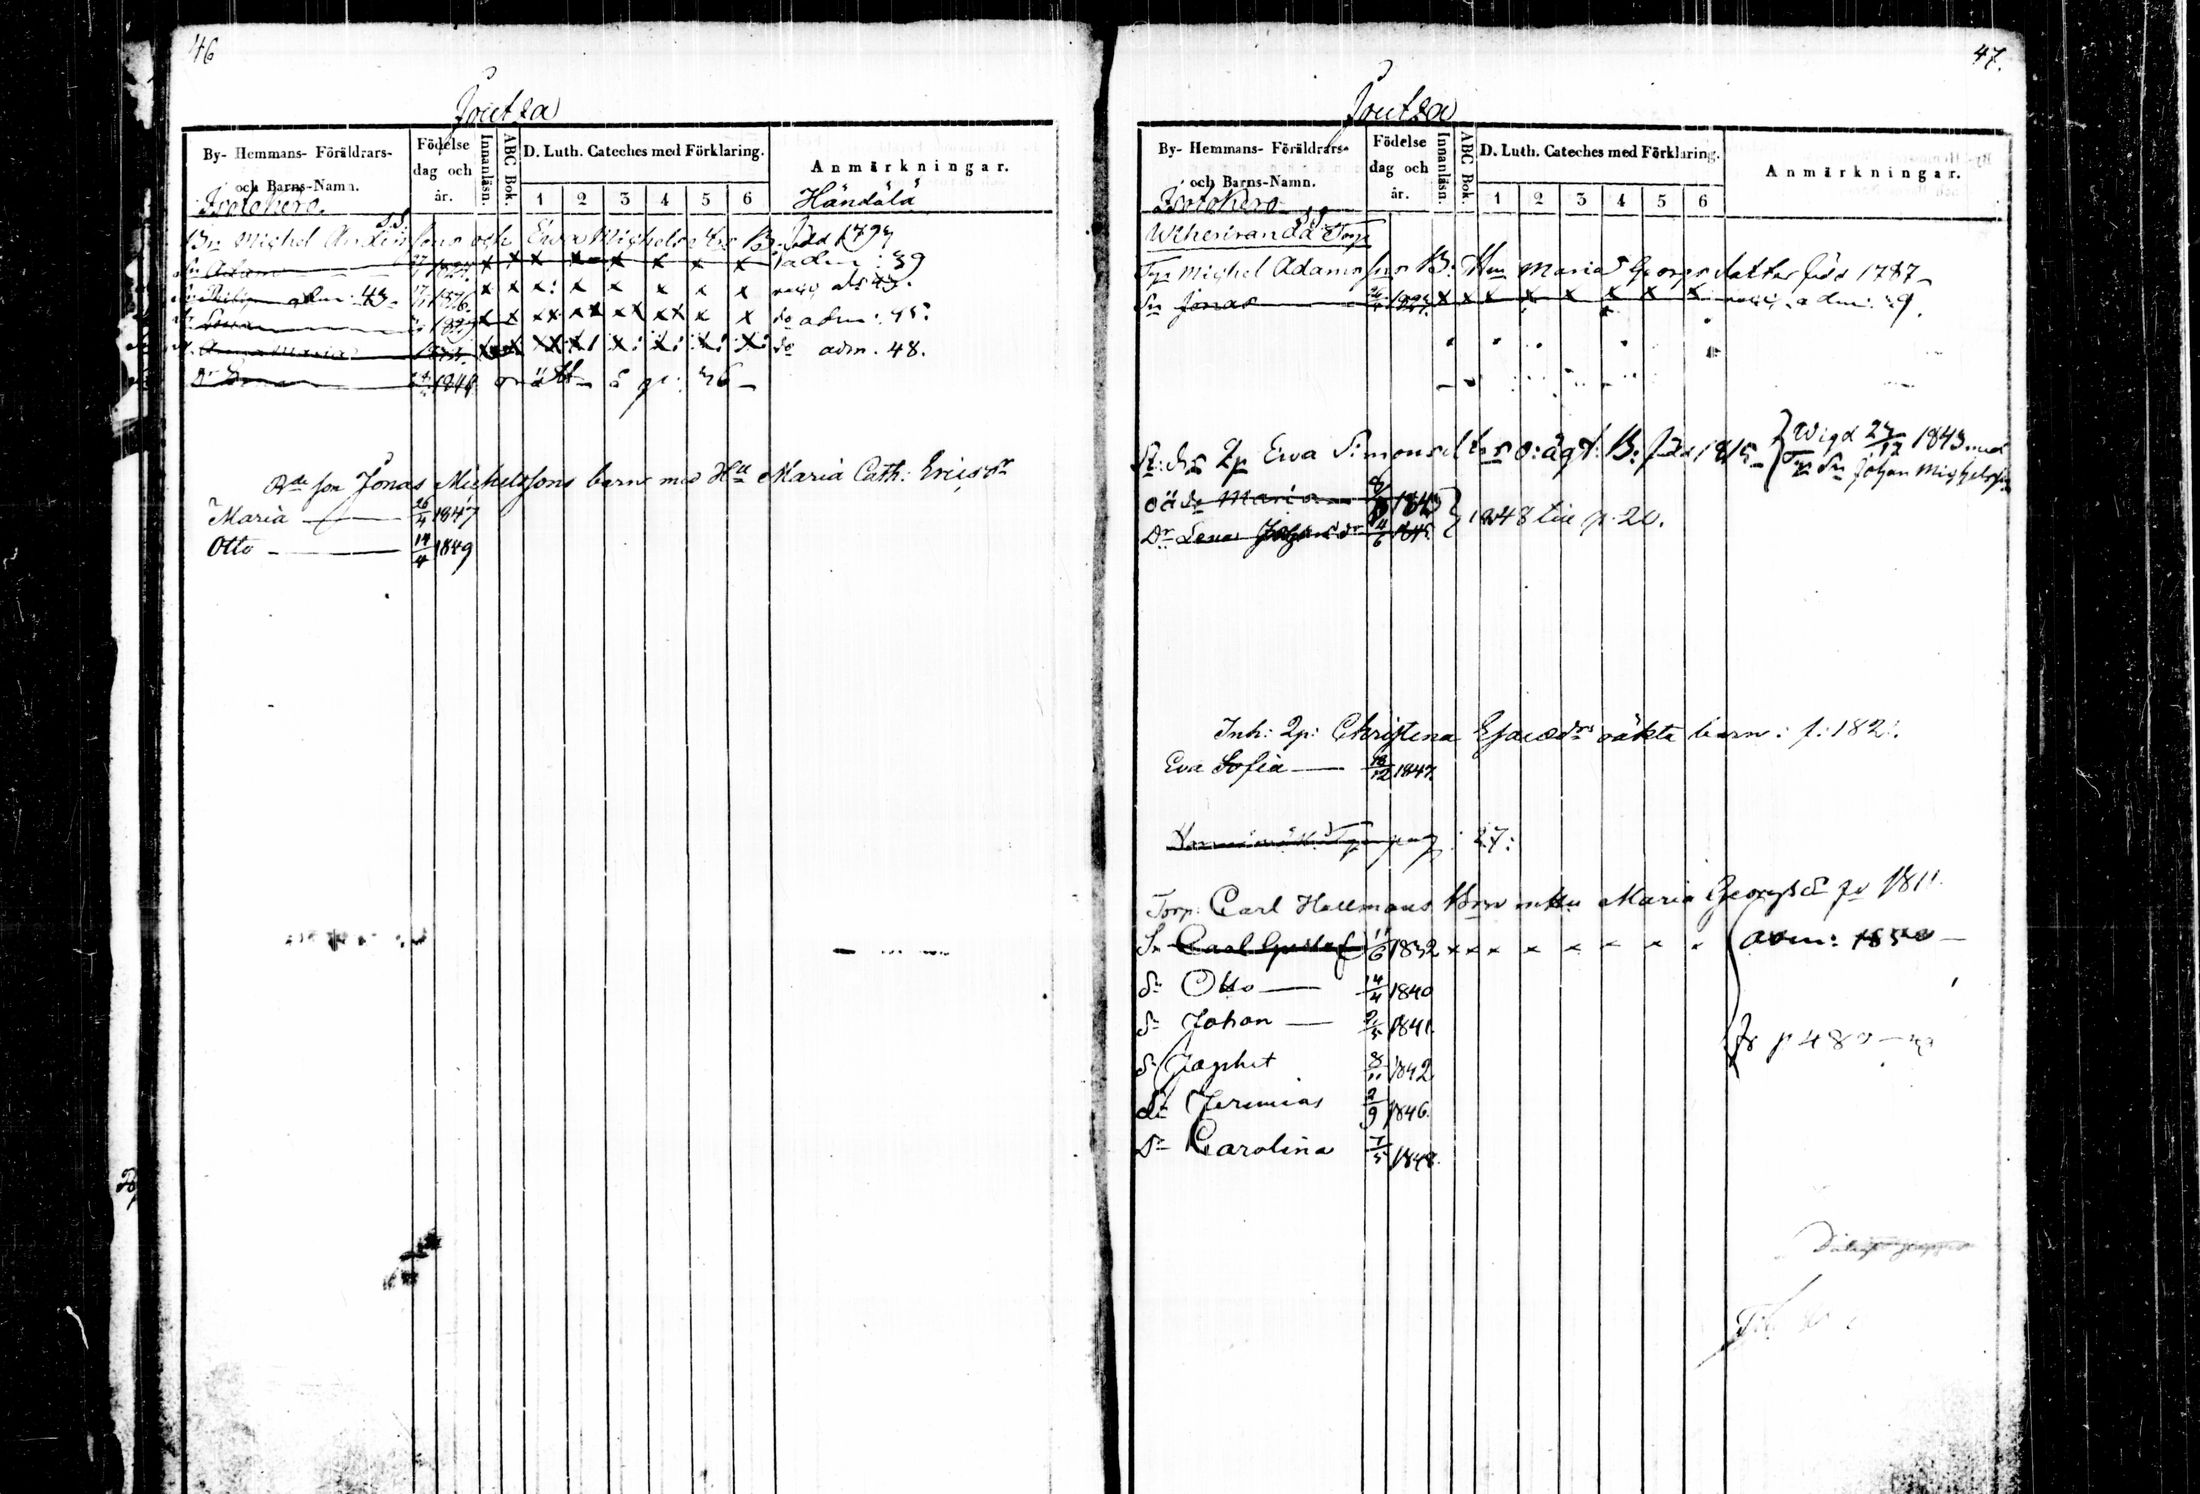 46
Joutza
By- Hemmans- Föräldrars- och Barns-Namn.
Födelse dag och år.
Innanläsn.
ABC Bok.
D. Luth. Cateches med Förklaring.
1 2 3 4 5 6
Anmärkningar.
Isotohero. Händälä
Bn Michel Anders sons och Ewa Michels dtrs B. född 1794
Sn Adam x x x x x x x x adm: 39
Sn Philip adm: 43 1826. x x x: x x x x x
x x xx xx xx xx x x do adm: 45:
Anna Maria xx x: x: x: x: do adm. 48.
Dr 1844
Bde son Jonas Michelssons barn med Hu Maria Cath: Ericsdr
Maria — 26/4 1847
Otto — 14/4 1849
47.
Joutza
By- Hemmans- Föräldrars- och Barns-Namn.
Födelse dag och år.
Innanläsn.
ABC Bok.
D. Luth. Cateches med Förklaring.
1 2 3 4 5 6
Anmärkningar.
Isotohero
Torp
Tpr Michel Adams sons B: Hu Maria Georgs datter född 1787
Sn Jonas x x x x x x x x adm:
Ewa Simonsdtrs o:ägt: B: född 1815 } Wigd 27/12 1843 med
Sn Johan Michelss
oä dr Maria 1843 } 1848 till p. 20.
Dr Lena 4/6 1845.
Inh: Qp: Christina Esaiædrs oäkta barn: f: 182
Eva Sofia — 18/12 1847.
pag: 27:
Torp: Carl Hallmans Barn m Hu Maria Georgsdr fö 1811.
Sn Carl Gustaf 11/6 1832 x x x x x x x x adm: 1850 —
Sn Otto — 14/4 1840
Sn Johan — 1841.
Sn Japhet 8/11 1842
Sn Jeremias 2/9 1846.
Dr Carolina 7/5 1848.